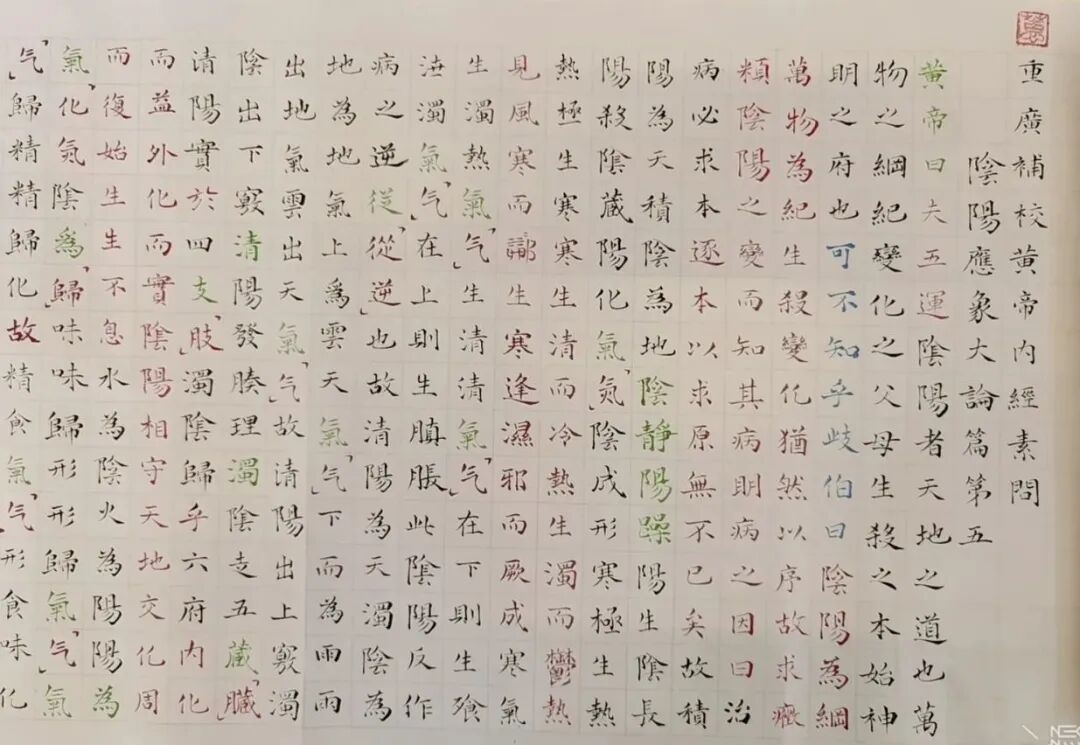 萬
重廣補校黃帝內經素問
陰陽應象大論篇第五
黃帝曰夫五運陰陽者天地之道也萬
物之綱紀變化之父母生殺之本始神
明之府也可不知乎歧伯曰陰陽為綱
萬物為紀生殺變化猶然以序故求癥
類陰陽之變而知其病明病之因曰治
病必求本逐本以求原無不已矣故積
陽為天積陰為地陰靜陽躁陽生陰長
陽殺陰藏陽化氣陰成形寒極生熱
熱極生寒寒生清而冷熱生濁而鬱熱
見風寒而生寒逢濕邪而厥成寒氣
生濁熱氣「气」生清清氣「气」在下則生飧
泄濁氣「气」在上則生䐜脹此陰陽反作
病之逆従「從」逆也故清陽為天濁陰為
地為地氣上為雲天氣「气」下而為雨雨
出地氣雲出天氣「气」故清陽出上竅濁
陰出下竅清陽發腠理濁陰走五藏「臟」
清陽實於四支「肢」濁陰歸乎六府內化
而益外化而實陰陽相守天地交化周
而復始生生不息水為陰火為陽陽為
氣「化」陰為「歸」味味歸形形歸氣「气」氣
「气」歸精精歸化故精食氣「气」形食味化